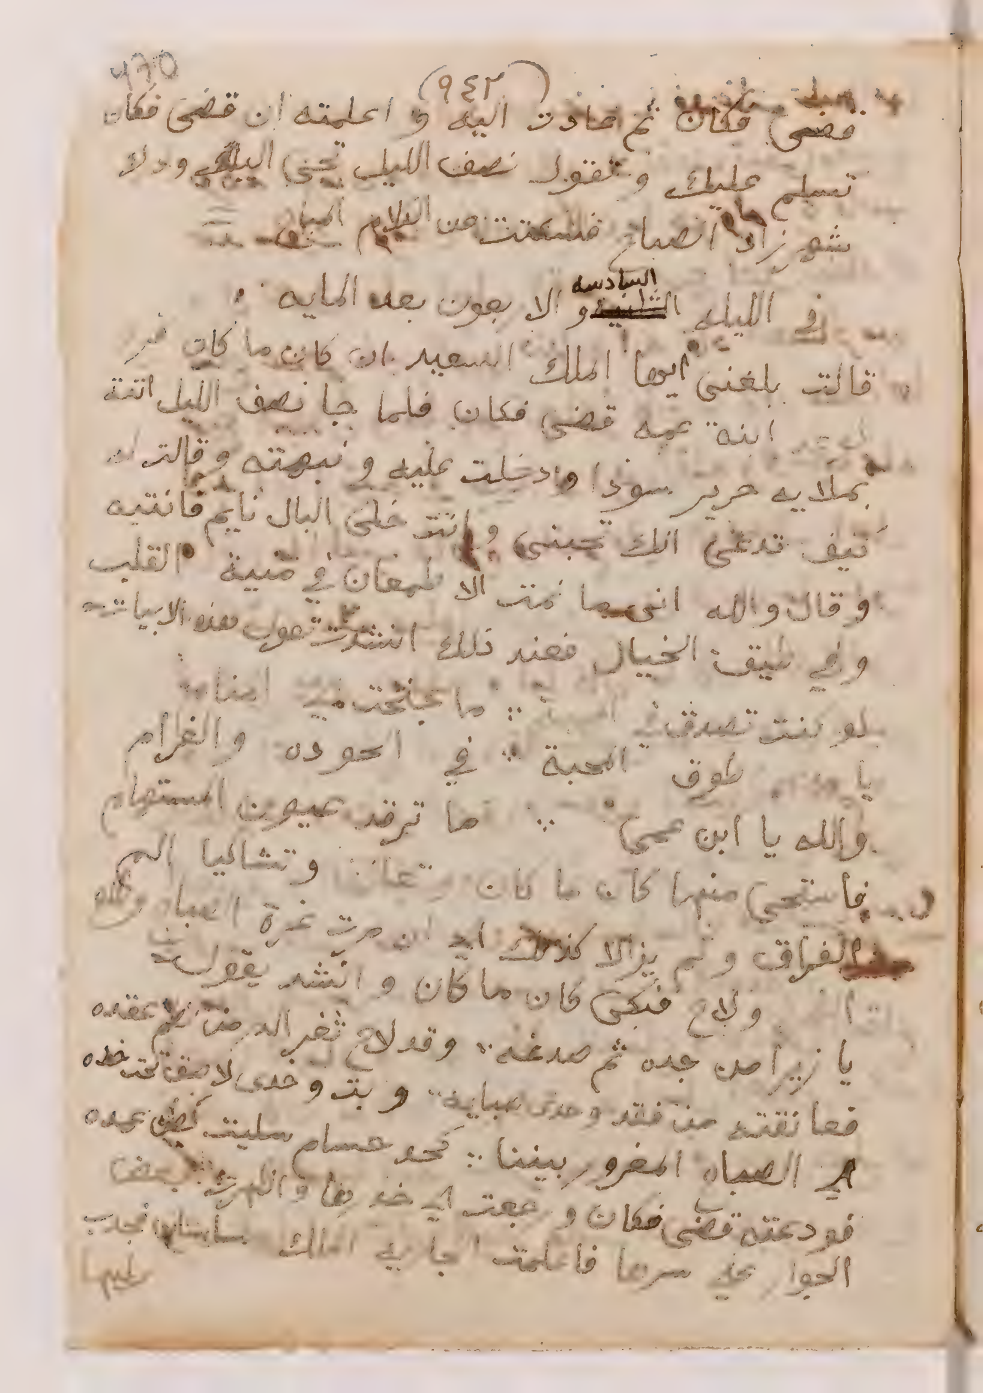 470
(٩٤٢)
قضى فكان ثم عادت اليه و اعلمته ان قضى فكان
تسلم عليك و تقول نصف الليل تجى اليك ودلا
شهرزاد الصباح فسكتت عن الكلام المباح
في الليله السادسه و الاربعون بعد المايه
قالت بلغنى ايها الملك السعيد ان كان ما كان
ابنة عمه قضى فكان فلما جا نصف الليل اتته
بملايه حرير سودا ودخلت عليه و نبهته وقالت له
كيف تدعى انك تحبنى و انت خلى البال نايم فانتبه
و قال والله انى ما نمت الا طمعان في القلب
وفي طيق الخيال فعند ذلك انشدت تقول هذه الابيات
لو كنت تصدق في ما جنحت
يا طوق المحبة في الموده والغرام
والله يا ابن عمى ما ترقد عيون المستهام
فاستحى منها كان ما كان وتشاكيا الم
الفراق و لم يزالا كذلك الى ان غرة الصباح
و لاح فبكى كان ما كان و انشد يقول
يا زيرا من جده ثم صدغه وقد لاح ثغر الدر من عقده
فعانقته و بت وخدى لاصق تحت خده
الى الصباح المغرور بيننا كحد حسام سليت
فودعته قضى فكان و رجعت الى خدرها و اظهرت بعض
الجوار على سرها فاعلمت الجاريه الملك ساسان